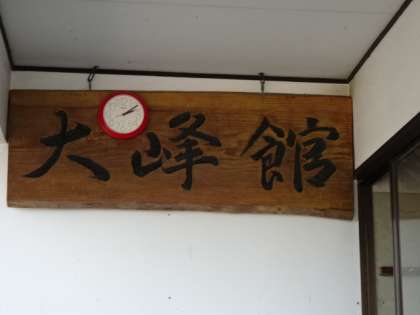 大峰館